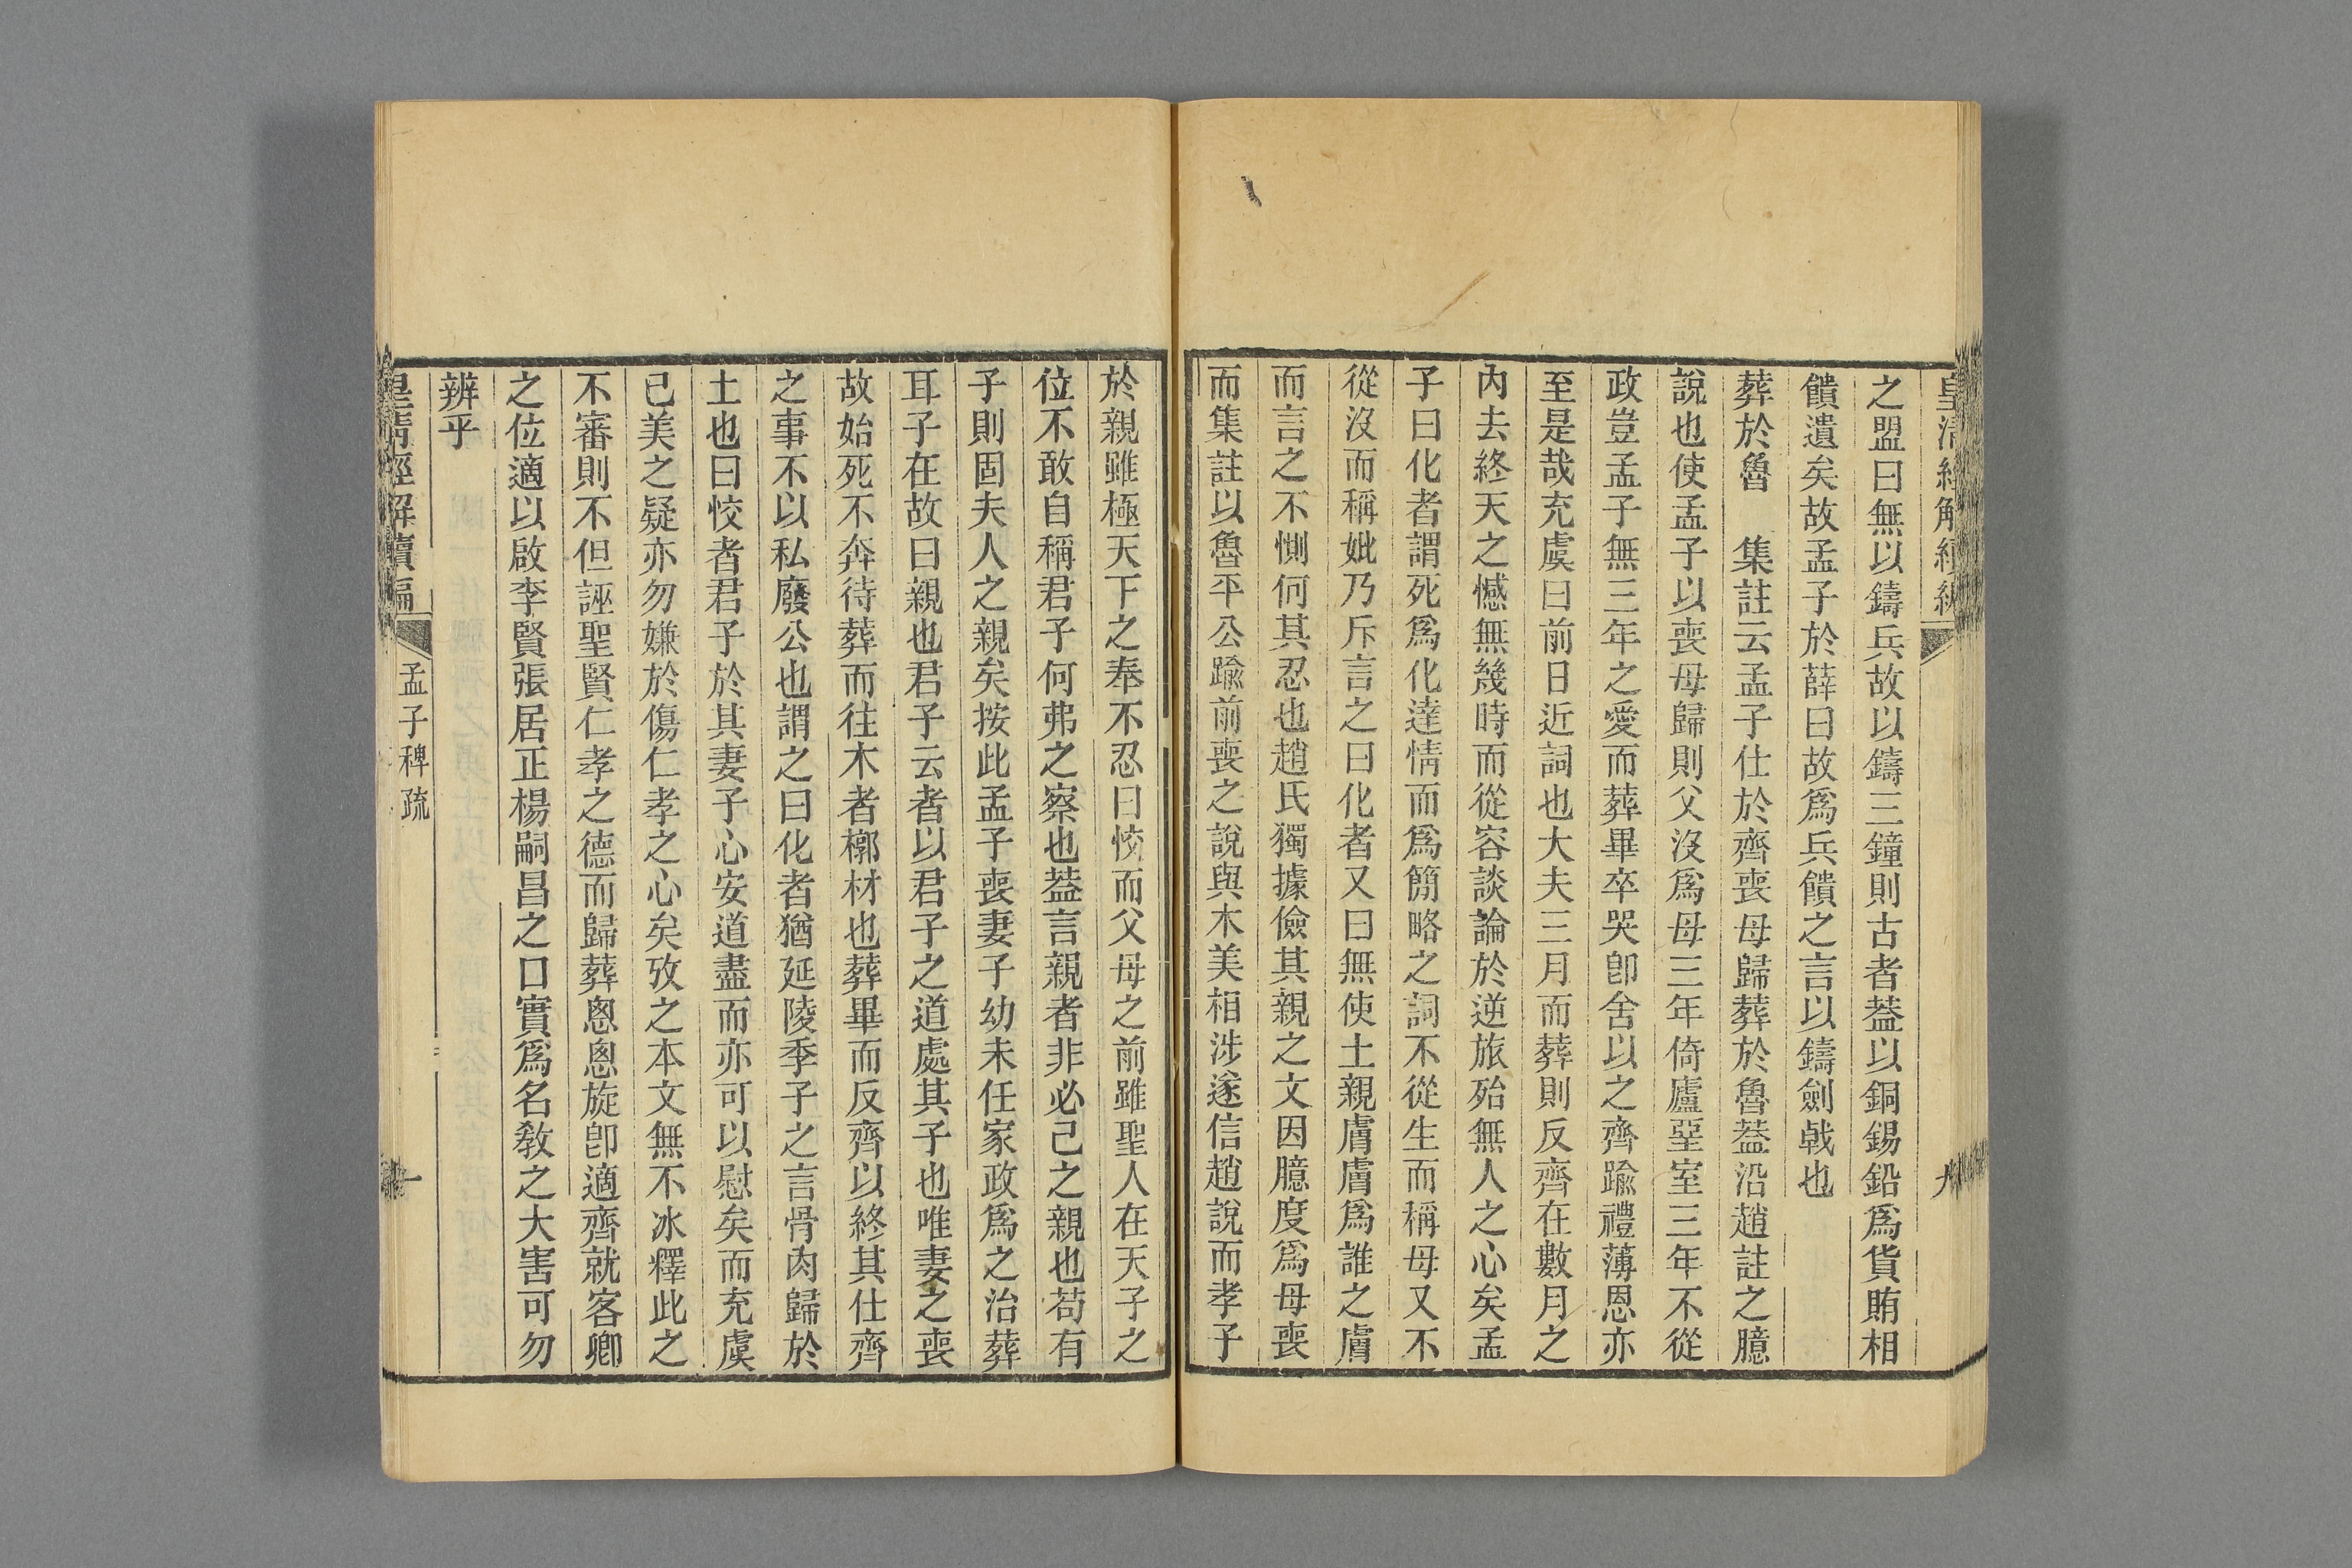 皇清經解續編
九
之盟曰無以鑄兵故以鑄三鐘則古者葢以銅錫鉛爲貨賄相
饋遺矣故孟子於薛曰故爲兵饋之言以鑄劍戟也
葬於魯　集註云孟子仕於齊喪母歸葬於魯葢沿趙註之臆
說也使孟子以喪母歸則父沒爲母三年倚廬堊室三年不從
政豈孟子無三年之愛而葬畢卒哭卽舍以之齊踰禮薄恩亦
至是哉充虞曰前日近詞也大夫三月而葬則反齊在數月之
內去終天之憾無幾時而從容談論於逆旅殆無人之心矣孟
子曰化者謂死爲化達情而爲簡略之詞不從生而稱母又不
從沒而稱妣乃斥言之曰化者又曰無使土親膚膚爲誰之膚
而言之不惻何其忍也趙氏獨據儉其親之文因臆度爲母喪
而集註以魯平公踰前喪之說與木美相涉遂信趙說而孝子
於親雖極天下之奉不忍曰恔而父母之前雖聖人在天子之
位不敢自稱君子何弗之察也葢言親者非必己之親也苟有
子則固夫人之親矣按此孟子喪妻子幼未任家政爲之治葬
耳子在故曰親也君子云者以君子之道處其子也唯妻之喪
故始死不奔待葬而往木者槨材也葬畢而反齊以終其仕齊
之事不以私廢公也謂之曰化者猶延陵季子之言骨肉歸於
土也曰恔者君子於其妻子心安道盡而亦可以慰矣而充虞
已美之疑亦勿嫌於傷仁孝之心矣攷之本文無不冰釋此之
不審則不但誣聖賢仁孝之德而歸葬悤悤旋卽適齊就客卿
之位適以啟李賢張居正楊嗣昌之口實爲名教之大害可勿
辨乎
皇清經解續編
孟子稗疏